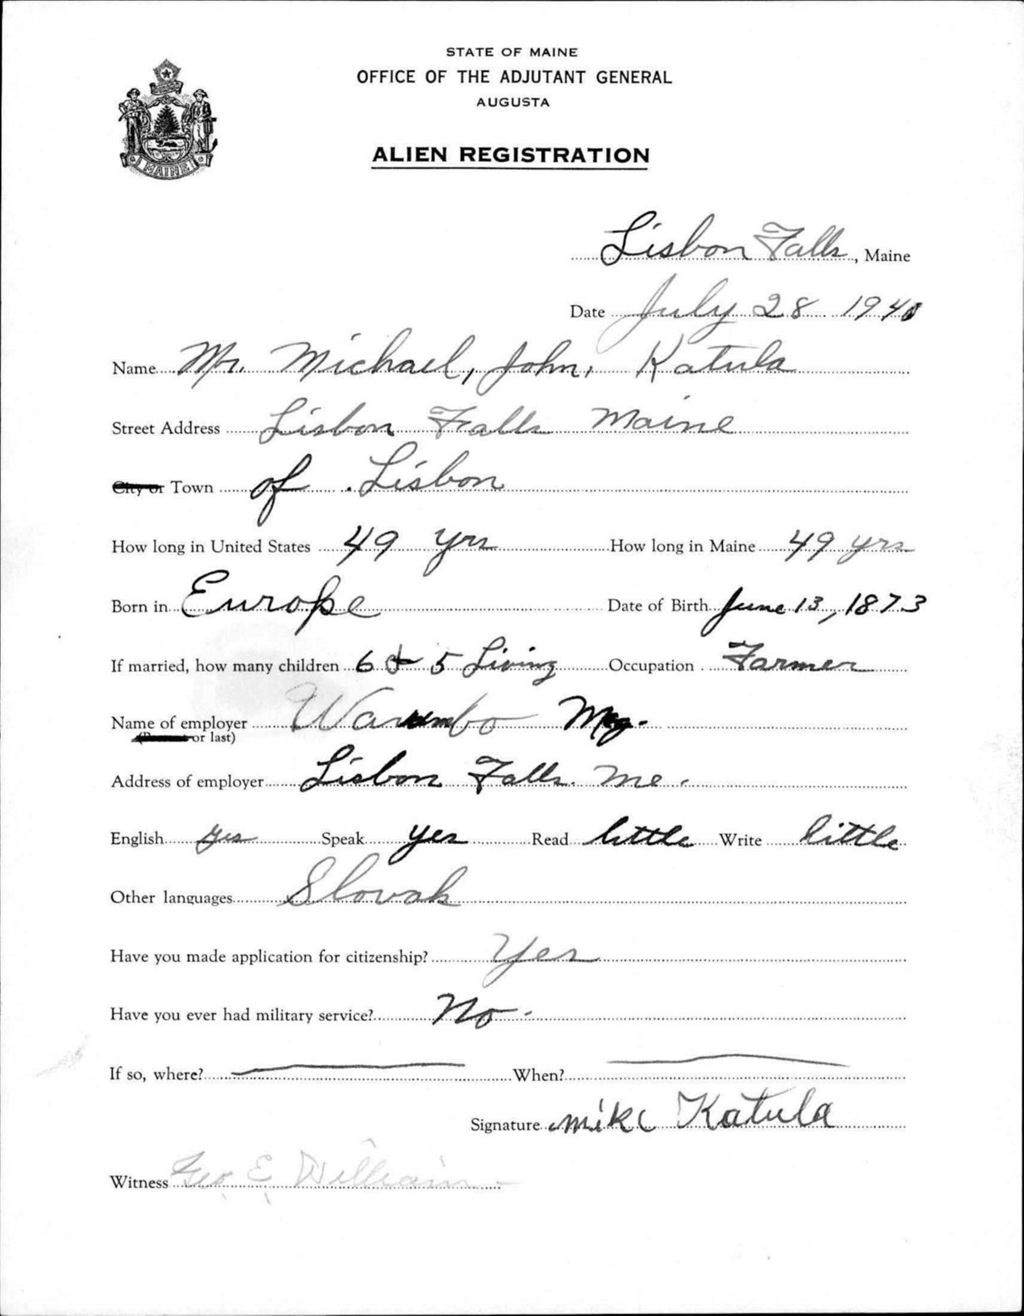 STATE OF MAINE
OFFICE OF THE ADJUTANT GENERAL
AUGUSTA
ALIEN REGISTRATION
MAINE
Lisbon Falls, Maine
Date July 28 1940
Name Mr. Michael, John, Katula
Street Address Lisbon Falls Maine
City or Town of Lisbon
How long in United States 49 yrs How long in Maine 49 yrs
Born in Europe Date of Birth June 13, 1873
If married, how many children 6 & 5 Living Occupation Farmer
Name of employer Warumbo Mfg.
(Present or last)
Address of employer Lisbon Falls. Me.
English yes Speak yes Read little Write little
Other languages Slovak
Have you made application for citizenship? Yes
Have you ever had military service? No.
If so, where? When?
Signature Mike Katula
Witness Geo E William